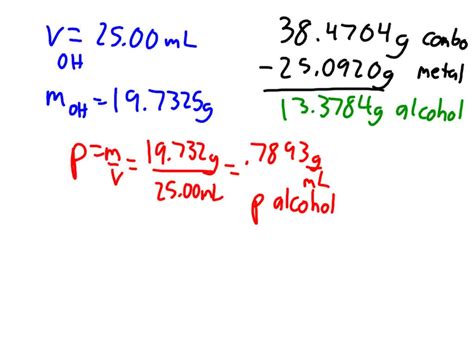 V = 25.00 mL
OH
m OH = 19.7325g
38.4704g combo
- 25.0920g metal
13.3784g alcohol
ρ = m/V = 19.732g/25.00mL = .7893 g/mL
ρ alcohol